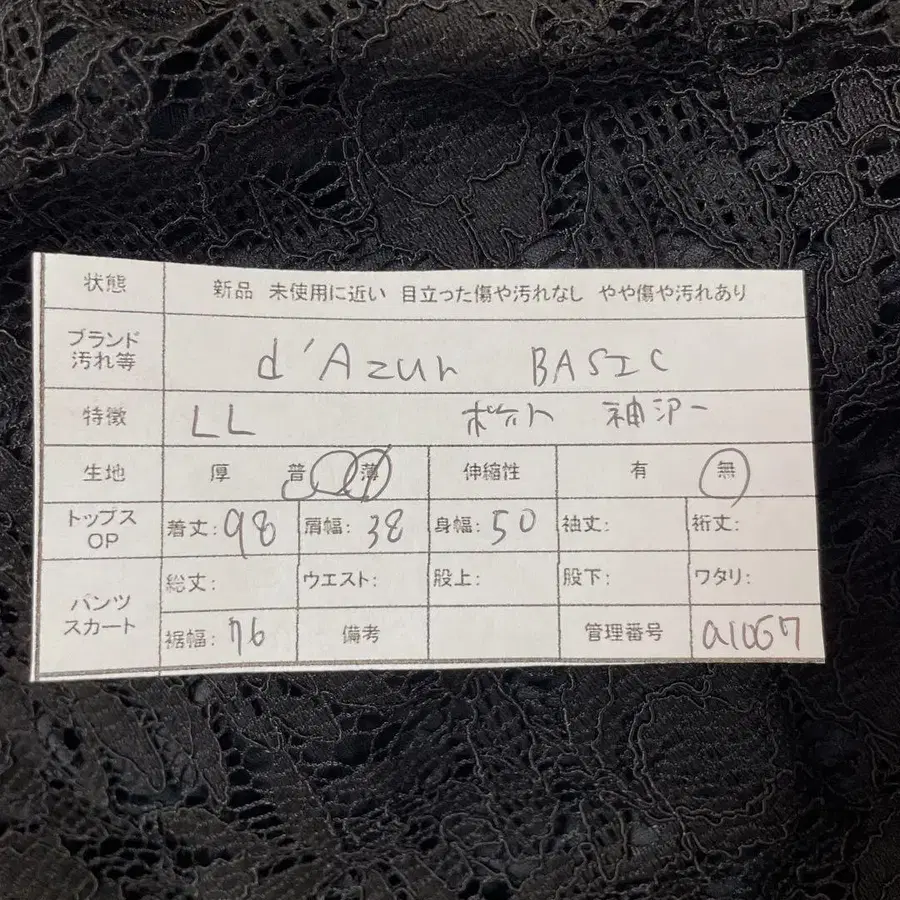 状態 新品 未使用に近い 目立った傷や汚れなし やや傷や汚れあり
ブランド 汚れ等 d'Azur BASIC
特徴 LL
生地 厚 普 薄 伸縮性 有 無
トップス OP 着丈: 98 肩幅: 38 身幅: 50 袖丈: 裄丈:
パンツ スカート 総丈: ウエスト: 股上: 股下: ワタリ:
裾幅: 76 備考 管理番号 a1067